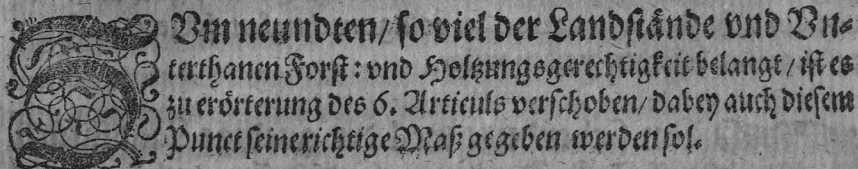 ZVm neundten/ so viel der Landstände vnd Vn⸗
terthanen Forst: vnd Holtzungsgerechtigkeit belangt/ ist es
zu erörterung des 6. Articuls verschoben/ dabey auch diesem
Punct seine richtige Maß gegeben werden sol.